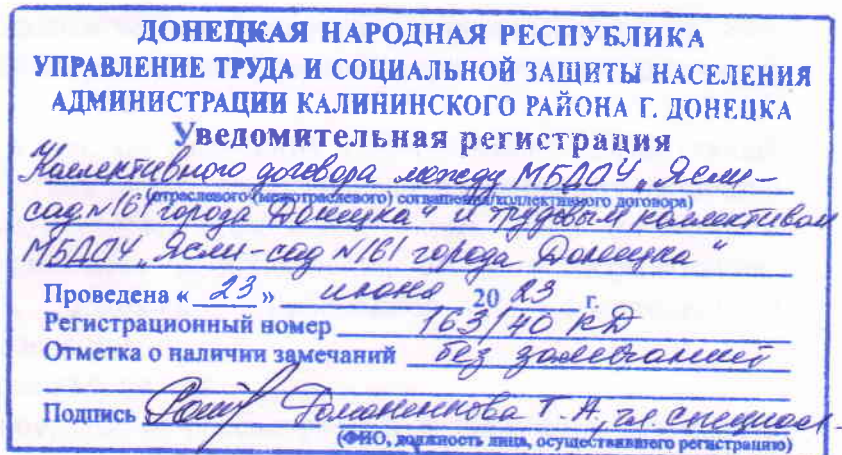 ДОНЕЦКАЯ НАРОДНАЯ РЕСПУБЛИКА
УПРАВЛЕНИЕ ТРУДА И СОЦИАЛЬНОЙ ЗАЩИТЫ НАСЕЛЕНИЯ
АДМИНИСТРАЦИИ КАЛИНИНСКОГО РАЙОНА Г. ДОНЕЦКА
Уведомительная регистрация
Коллективного договора между МБДОУ „Ясли-
(отраслевого (межотраслевого) соглашения/коллективного договора)
сад №161 города Донецка" и трудовым коллективом
МБДОУ „Ясли-сад №161 города Донецка"
Проведена « 23 » июня 20 23 г.
Регистрационный номер 163/40 КД
Отметка о наличии замечаний без замечаний
Подпись Т.А, гл. специал-
(ФИО, должность лица, осуществившего регистрацию)